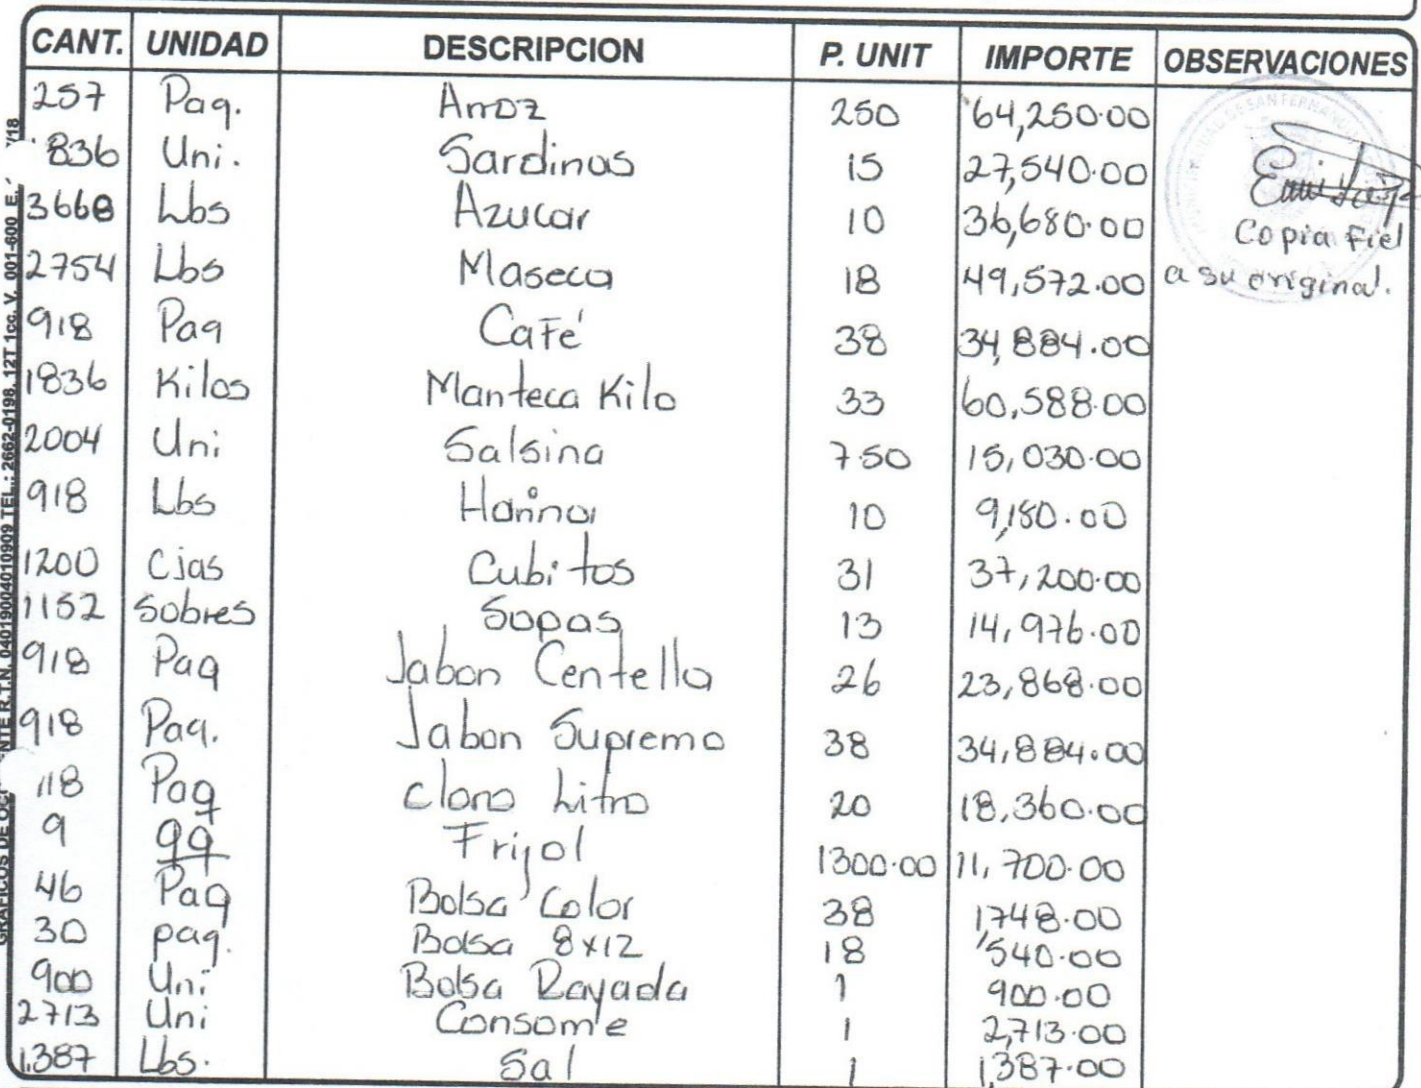 CANT. UNIDAD DESCRIPCION P. UNIT IMPORTE OBSERVACIONES
257 Paq. Arroz 250 64,250.00
836 Uni. Sardinas 15 27,540.00
3668 Lbs Azucar 10 36,680.00
Copia Fiel
2754 Lbs Maseca 18 49,572.00 a su original.
918 Paq Café 38 34,884.00
1836 Kilos Manteca Kilo 33 60,588.00
2004 Uni Salsina 7.50 15,030.00
918 Lbs Harina 10 9,180.00
1200 Cjas Cubitos 31 37,200.00
1152 Sobres Sopas 13 14,976.00
918 Paq Jabon Centella 26 23,868.00
918 Paq. Jabon Supremo 38 34,884.00
118 Paq Cloro Litro 20 18,360.00
9 qq Frijol 1300.00 11,700.00
46 Paq Bolsa Color 38 1748.00
30 paq. Bolsa 8x12 18 540.00
900 Uni Bolsa Rayada 1 900.00
2713 Uni Consomé 1 2,713.00
1,387 Lbs. Sal 1 1,387.00
NTE R.T.N. 04019004010909 TEL.: 2662-0198. 12T 1cc. V. 001-600 E.
GRAFICOS DE